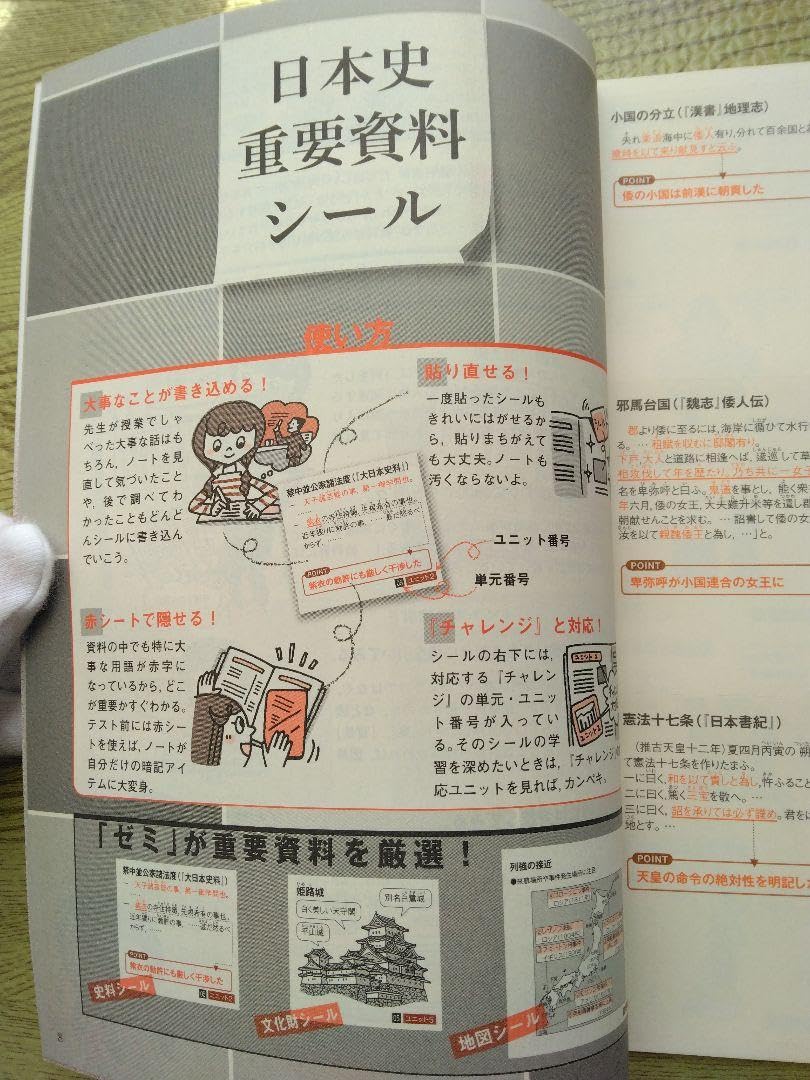 日本史
重要資料
シール
使い方
大事なことが書き込める！
先生が授業でしゃ
べった大事な話はも
ちろん，ノートを見
直して気づいたこと
や，後で調べてわ
かったこともどんど
んシールに書き込ん
でいこう。
貼り直せる！
一度貼ったシールも
きれいにはがせるか
ら，貼りまちがえて
も大丈夫。ノートも
汚くならないよ。
禁中並公家諸法度（『大日本史料』）
一 天子諸芸能の事，第一御学問也。
POINT
紫衣の勅許にも厳しく干渉した
ユニット2
ユニット番号
単元番号
赤シートで隠せる！
資料の中でも特に大
事な用語が赤字に
なっているから，どこ
が重要かすぐわかる。
テスト前には赤シー
トを使えば，ノートが
自分だけの暗記アイ
テムに大変身。
『チャレンジ』と対応！
シールの右下には，
対応する『チャレン
ジ』の単元・ユニッ
ト番号が入ってい
る。そのシールの学
習を深めたいときは，『チャレンジ』の
応ユニットを見れば，カンペキ。
「ゼミ」が重要資料を厳選！
禁中並公家諸法度（『大日本史料』）
一 天子諸芸能の事，第一御学問也。
POINT
紫衣の勅許にも厳しく干渉した
ユニット2
史料シール
姫路城
白く美しい天守閣
別名白鷺城
平山城
05 ユニット5
文化財シール
列強の接近
地図シール
8
小国の分立（『漢書』地理志）
夫れ楽浪海中に倭人有り，分れて百余国と
歳時を以て来り献見すと云ふ。
POINT
倭の小国は前漢に朝貢した
邪馬台国（『魏志』倭人伝）
郡より倭に至るには，海岸に循ひて水行
る。… 租賦を収むに邸閣有り。
下戸，大人と道路に相逢へば，逡巡して草
相攻伐して年を歴たり。乃ち共に一女子
名を卑弥呼と曰ふ。鬼道を事とし，能く衆
年六月，倭の女王，大夫難升米等を遣し郡
朝献せんことを求む。… 詔書して倭の女
汝を以て親魏倭王と為し，…」と。
POINT
卑弥呼が小国連合の女王に
憲法十七条（『日本書紀』）
（推古天皇十二年）夏四月丙寅の朔
て憲法十七条を作りたまふ。
一に曰く，和を以て貴しと為し，忤ふること
二に曰く，篤く三宝を敬へ。…
三に曰く，詔を承りては必ず謹め。君を
地とす。…
POINT
天皇の命令の絶対性を明記し